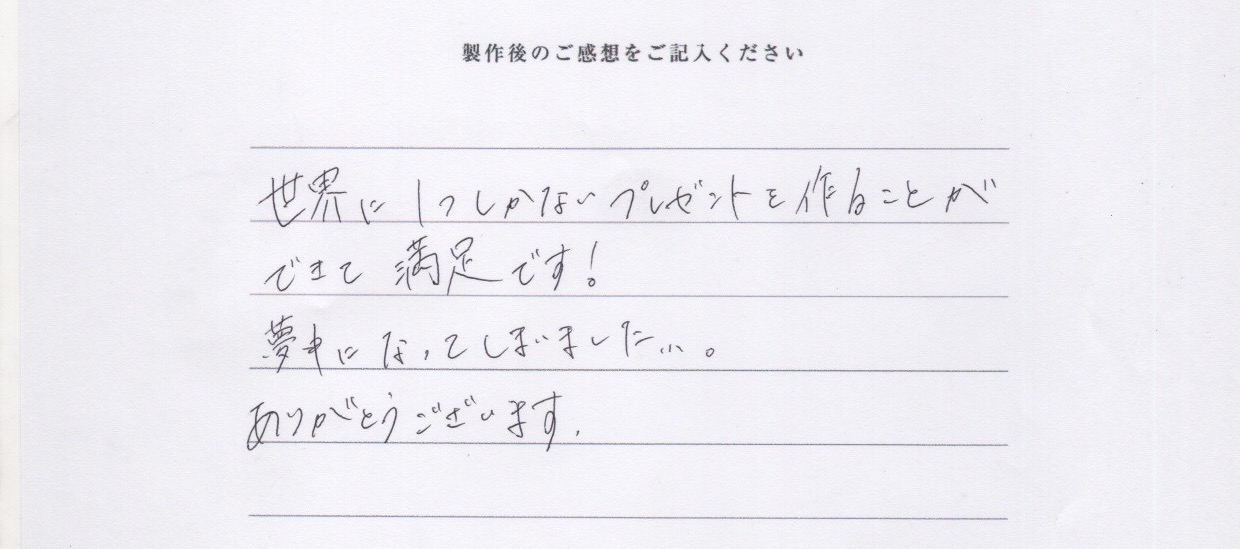 製作後のご感想をご記入ください
世界に1つしかないプレゼントを作ることが
できて満足です!
夢中になってしまいました...。
ありがとうございます.